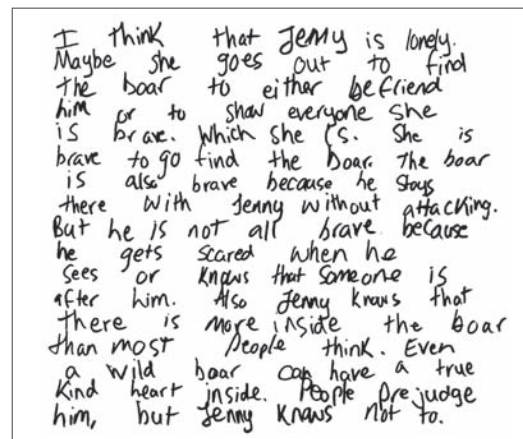 I think that Jenny is lonely.
Maybe she goes out to find
the boar to either befriend
him or to show everyone she
is brave. Which she is. She is
brave to go find the boar. The boar
is also brave because he stays
there with Jenny without attacking.
But he is not all brave because
he gets scared when he
sees or knows that someone is
after him. Also Jenny knows that
there is more inside the boar
than most people think. Even
a wild boar can have a true
kind heart inside. People prejudge
him, but Jenny knows not to.